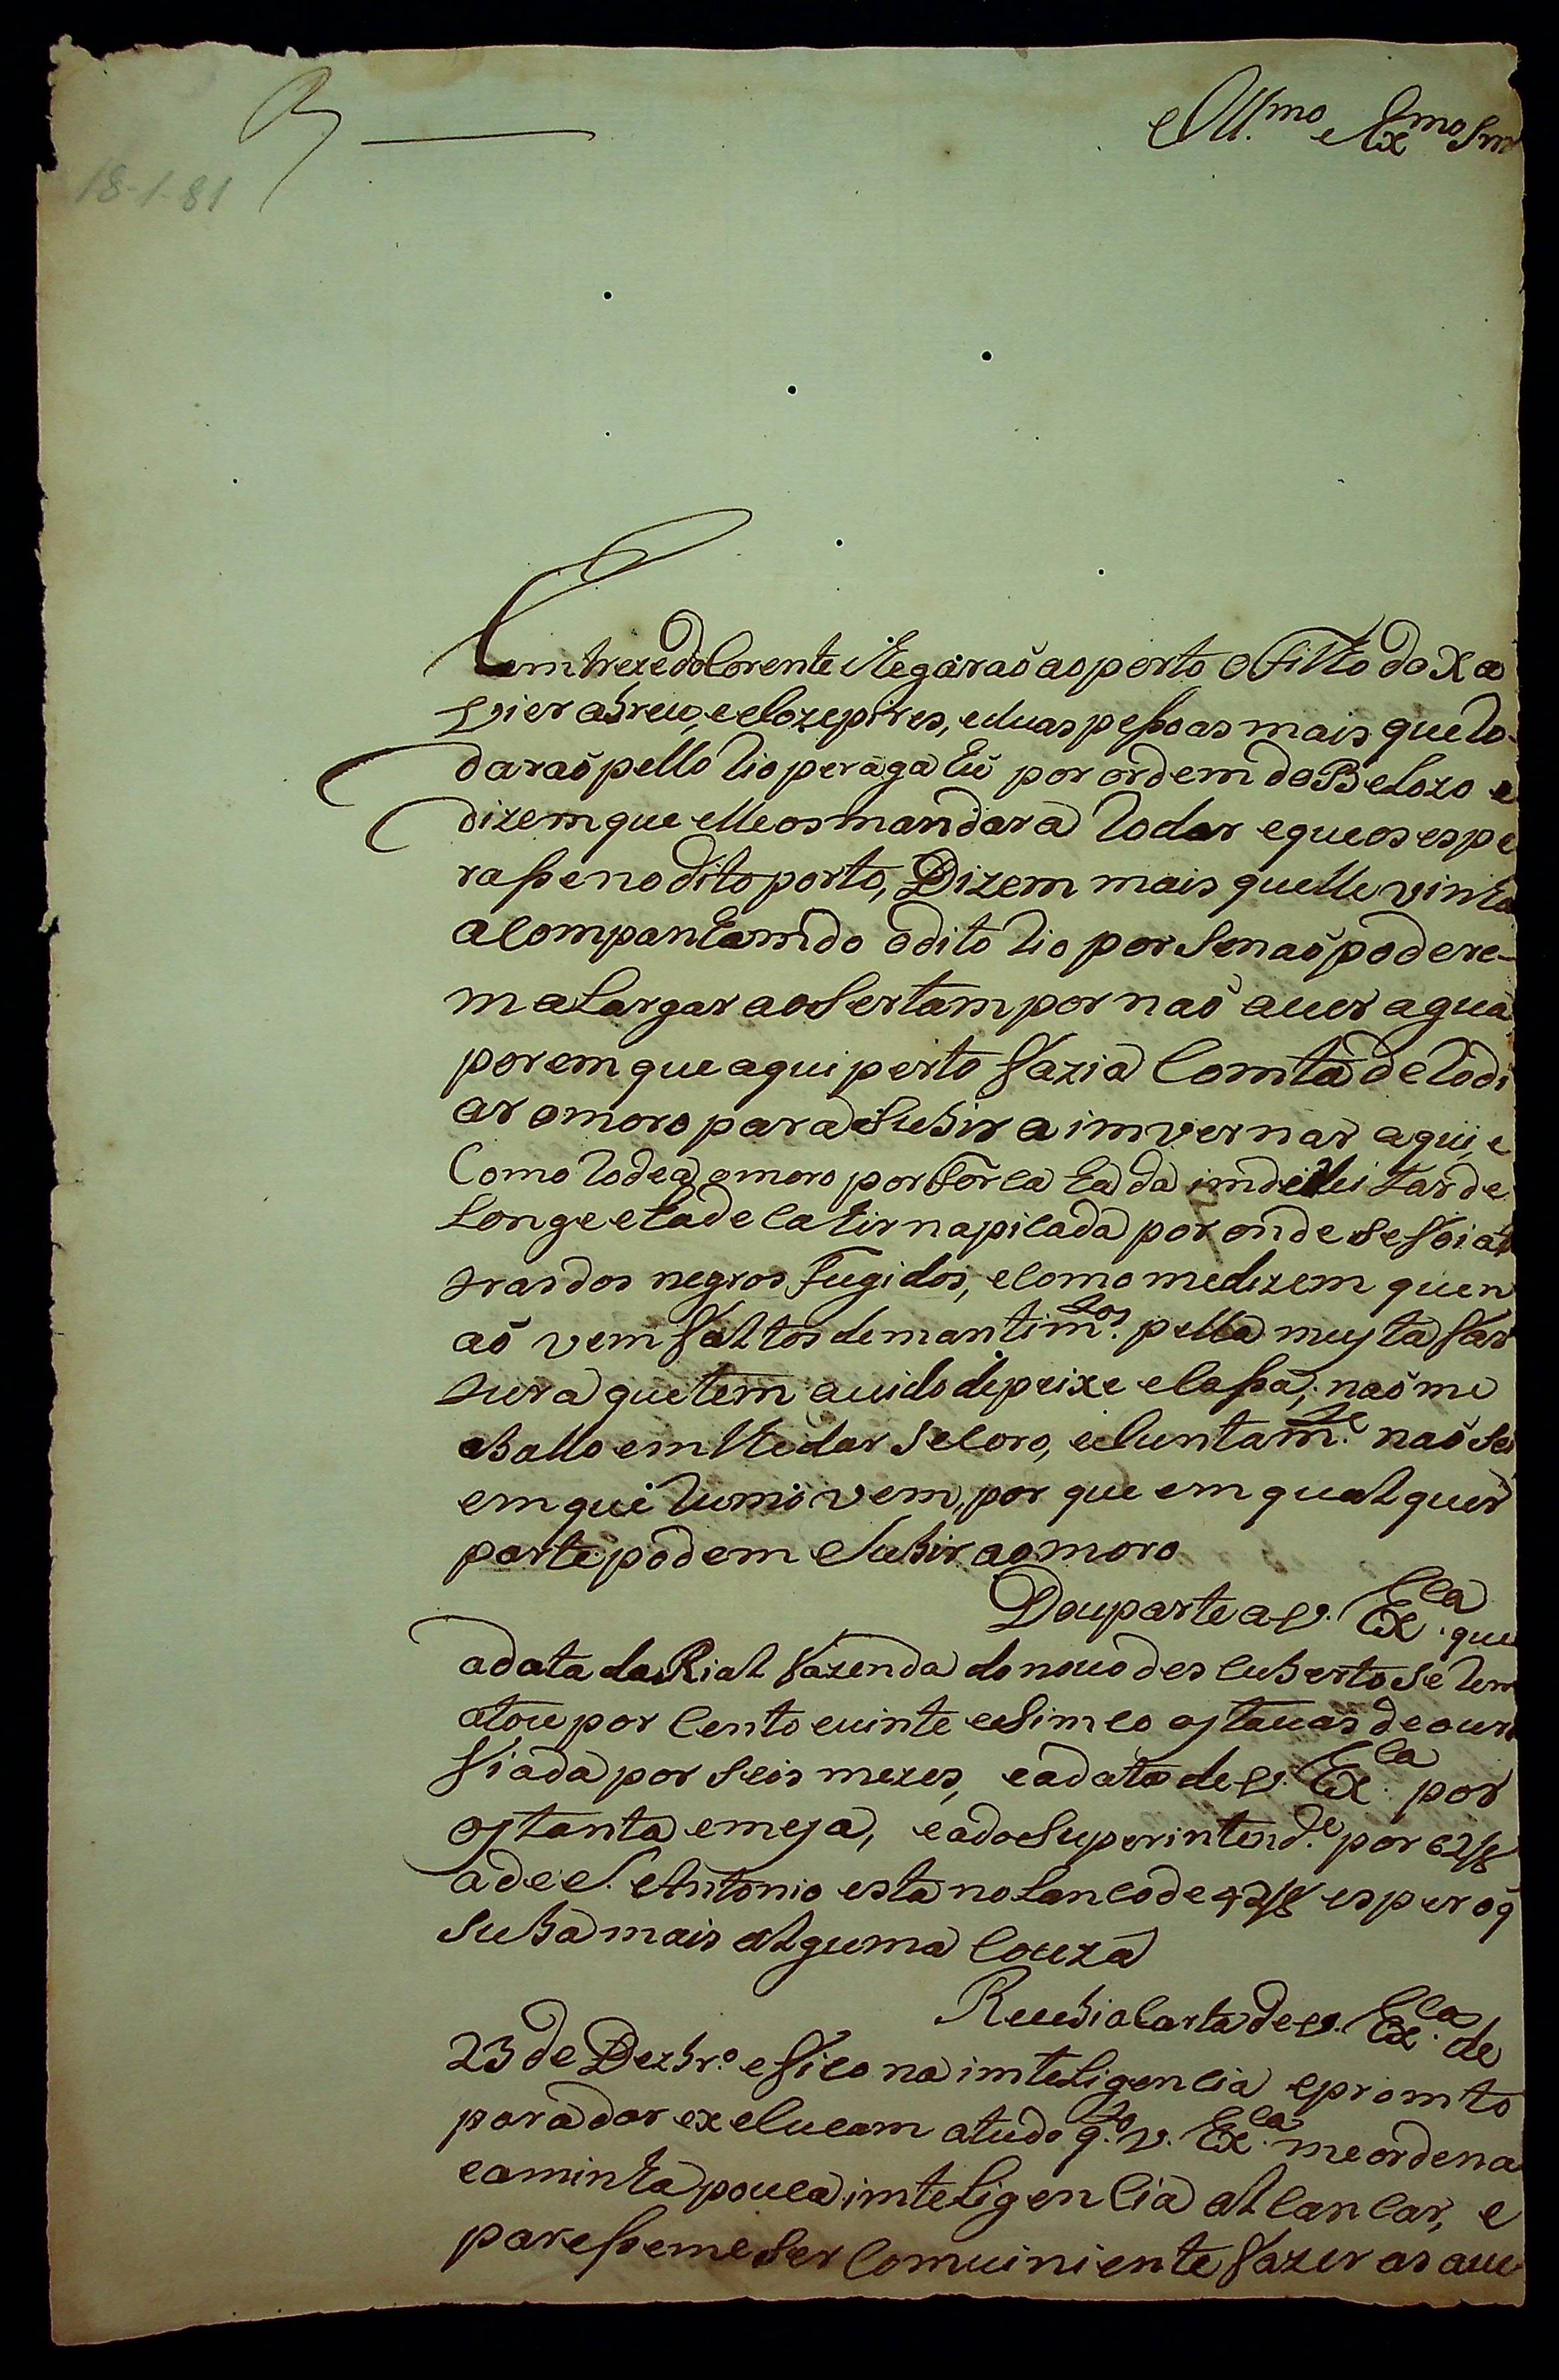 R
Ill.mo e Ex.mo Snr
18-1-81
Em treze do Corente xegàraõ ao porto o filho do Xa
vier abreu, e Joze pires, e duas peßoas mais que ro-
daraõ pello rio per a ga por ordem do Belozo e
dizem que elle os mandara rodar e que os espe
raße no dito porto, Dizem mais que elle vinha
acompanhamdo o dito rio por se naõ podere-
m alargar ao sertam por naõ auer agua
porem que aqui perto fazia Comta de rodi
ar o moro para subir a imvernar aqui, e
Como rodea o moro por forca ha da imdireitar de
longe e ha de Cahir na picada por onde se foi a
tras dos negros fugidos, e como me dizem que n
aõ vem faltos de mantim.tos pella muyta far
tura que tem auido de peixe e caßa, naõ me
aballo em lhe dar socoro, e Juntam.te naõ sei
em que rumo vem, por que em qual quer
parte podem subir ao moro
Dou parte a V. Ex.cia que
a data da Rial fazenda do nouo descuberto se rem
atou por Cento e uinte e simco oytauas de ouro
fiada por seis mezes, e a data de V. Ex.cia por
oytanta e meya, e a do Superintend.e por 62/8
a de S. Antonio esta no Lanco de 42/8 espero q̃
suba mais alguma Couza
Recebi a Carta de V. Ex.cia de
23 de Dezbr.o e fico na imteligencia e promto
para dar execucam a tudo q.to V. Ex.cia me ordena
e a minha pouca imteligencia alcancar, e
pareßeme ser Comuiniente fazer as aue